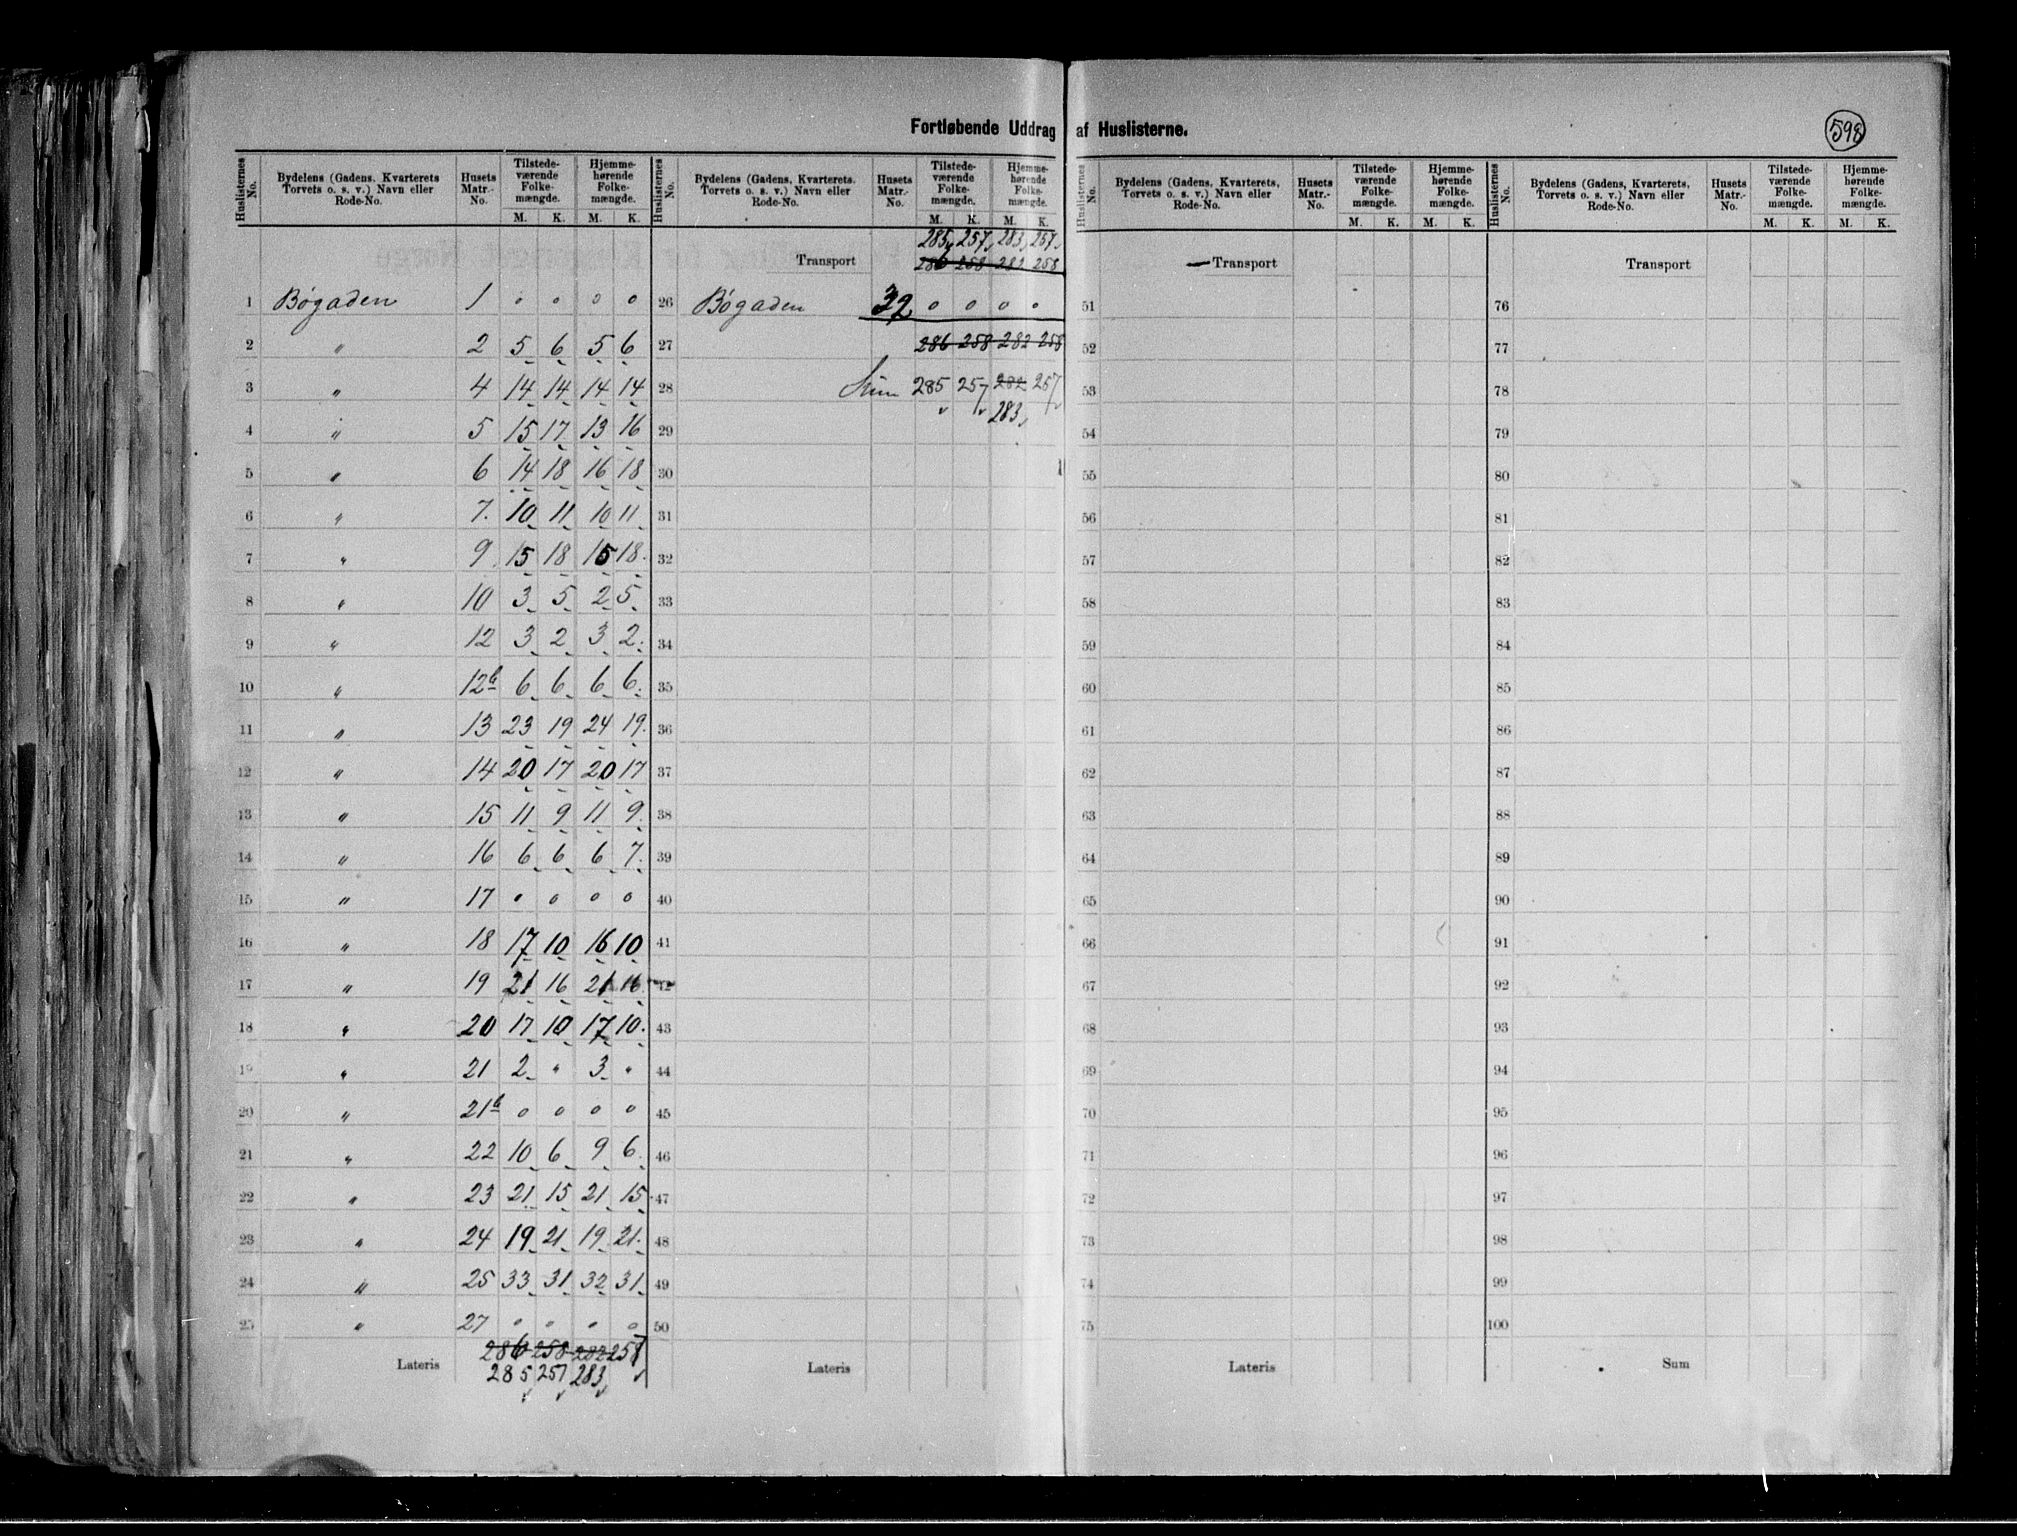 Fortløbende Uddrag af Huslisterne.
598
Huslisternes No. | Bydelens (Gadens, Kvarterets, Torvets o. s. v.) Navn eller Rode-No. | Husets Matr.-No. | Tilstedeværende Folkemængde. M. K. | Hjemmehørende Folkemængde. M. K.
1 Bøgaden 1 0 0 0 0
2 " 2 5 6 5 6
3 " 4 14 14 14 14
4 " 5 15 17 13 16
5 " 6 14 18 16 18
6 " 7. 10 11 10 11
7 " 9 15 18 15 18
8 " 10 3 5 2 5
9 " 12 3 2 3 2
10 " 12b 6 6 6 6
11 " 13 23 19 24 19
12 " 14 20 17 20 17
13 " 15 11 9 11 9
14 " 16 6 6 6 7
15 " 17 0 0 0 0
16 " 18 17 10 16 10
17 " 19 21 16 21 16
18 " 20 17 10 17 10
19 " 21 2 " 3 "
20 " 21b 0 0 0 0
21 " 22 10 6 9 6
22 " 23 21 15 21 15
23 " 24 19 21 19 21
24 " 25 33 31 32 31
25 " 27 0 0 0 0
286 258 282 257
Lateris 285 257 283
Huslisternes No. | Bydelens (Gadens, Kvarterets. Torvets o. s. v.) Navn eller Rode-No. | Husets Matr.-No. | Tilstedeværende Folkemængde. M. K. | Hjemmehørende Folkemængde. M. K.
285 257 283 257
Transport 286 258 282 258
26 Bøgaden 32 0 0 0 0
27 286 258 282 258
28 Sum 285 257 282 257
283
29
30
31
32
33
34
35
36
37
38
39
40
41
42
43
44
45
46
47
48
49
50
Lateris
Huslisternes No. | Bydelens (Gadens, Kvarterets, Torvets o. s. v.) Navn eller Rode-No. | Husets Matr.-No. | Tilstedeværende Folkemængde. M. K. | Hjemmehørende Folkemængde. M. K.
Transport
51
52
53
54
55
56
57
58
59
60
61
62
63
64
65
66
67
68
69
70
71
72
73
74
75
Lateris
Huslisternes No. | Bydelens (Gadens, Kvarterets, Torvets o. s. v.) Navn eller Rode-No. | Husets Matr.-No. | Tilstedeværende Folkemængde. M. K. | Hjemmehørende Folkemængde. M. K.
Transport
76
77
78
79
80
81
82
83
84
85
86
87
88
89
90
91
92
93
94
95
96
97
98
99
100
Sum